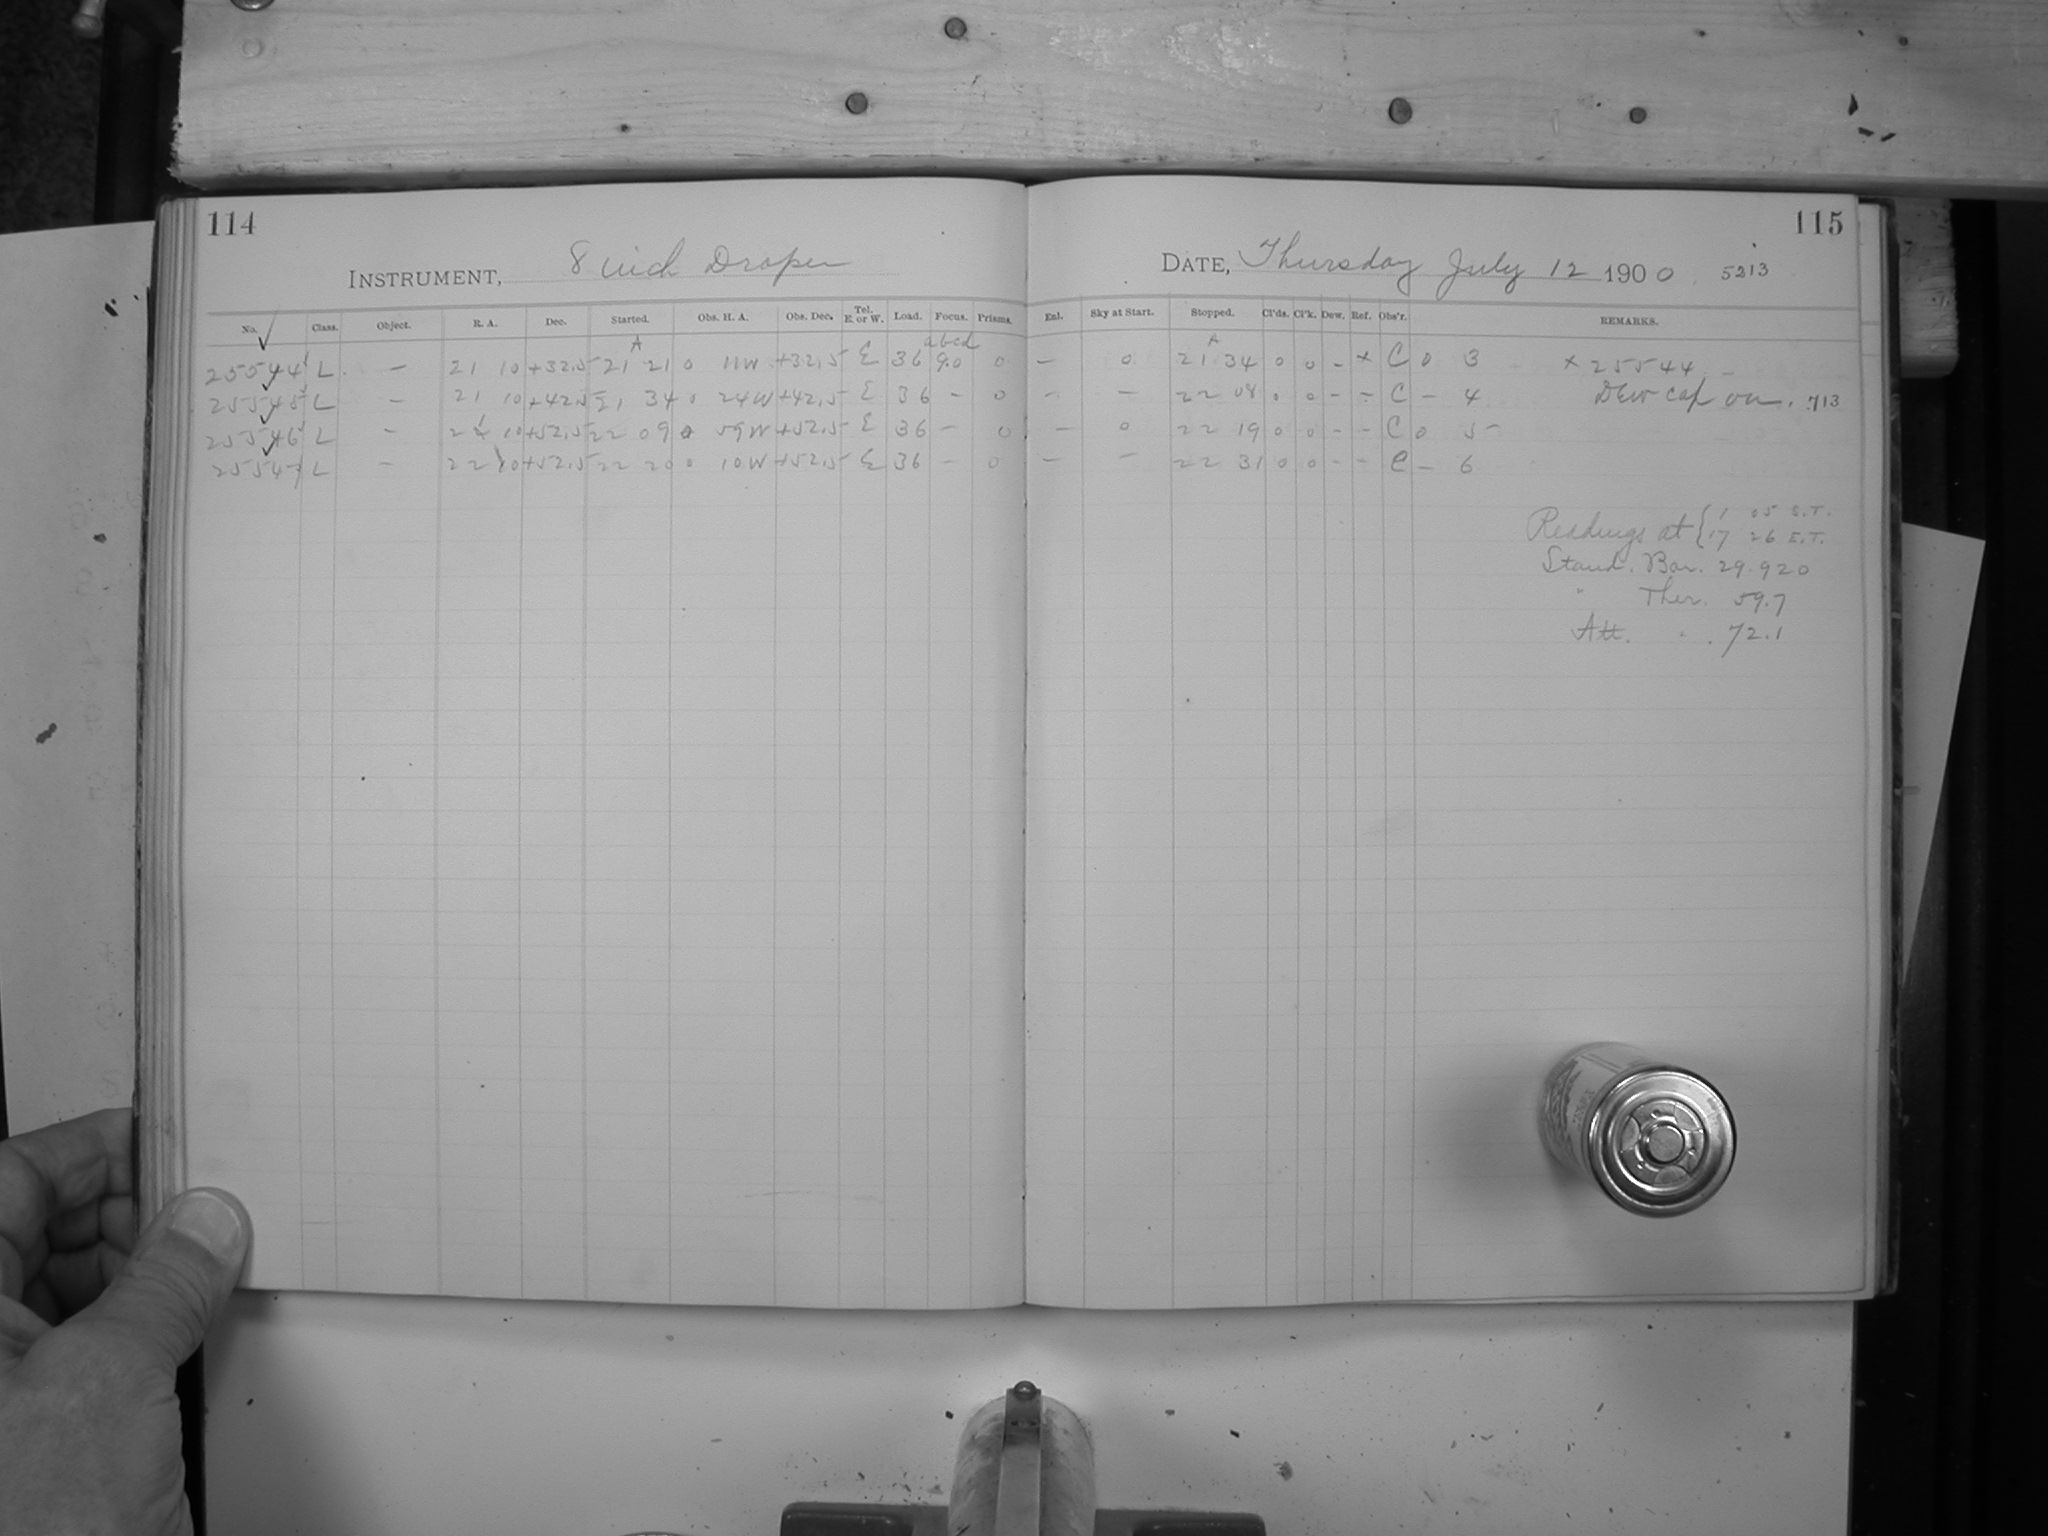 114
115
INSTRUMENT, 8 inch Draper
DATE, Thursday July 12 1900 5213
No. Class. Object. R. A. Dec. Started. Obs. H. A. Obs. Dec. Tel. E. or W. Load. Focus. Prisms. Enl. Sky at Start. Stopped. Cl'ds. Cl'k. Dew. Ref. Obs'r. REMARKS.
A abcd A
25544 L - 21 10 +32.5 21 21 0 11W +32.5 E 36 9.0 0 - 0 21 34 0 0 - x C 0 3 x 25544
25545 L - 21 10 +42.5 21 34 0 24W +42.5 E 36 - 0 - - 22 08 0 0 - - C - 4 Dew cap on. 713
25546 L - 21 10 +52.5 22 09 0 59W +52.5 E 36 - 0 - 0 22 19 0 0 - - C 0 5
25547 L - 22 10 +52.5 22 20 0 10W +52.5 E 36 - 0 - - 22 31 0 0 - - C - 6
Readings at { 1 05 S.T.
17 26 E.T.
Stand. Bar. 29.920
" Ther. 59.7
Att. " 72.1